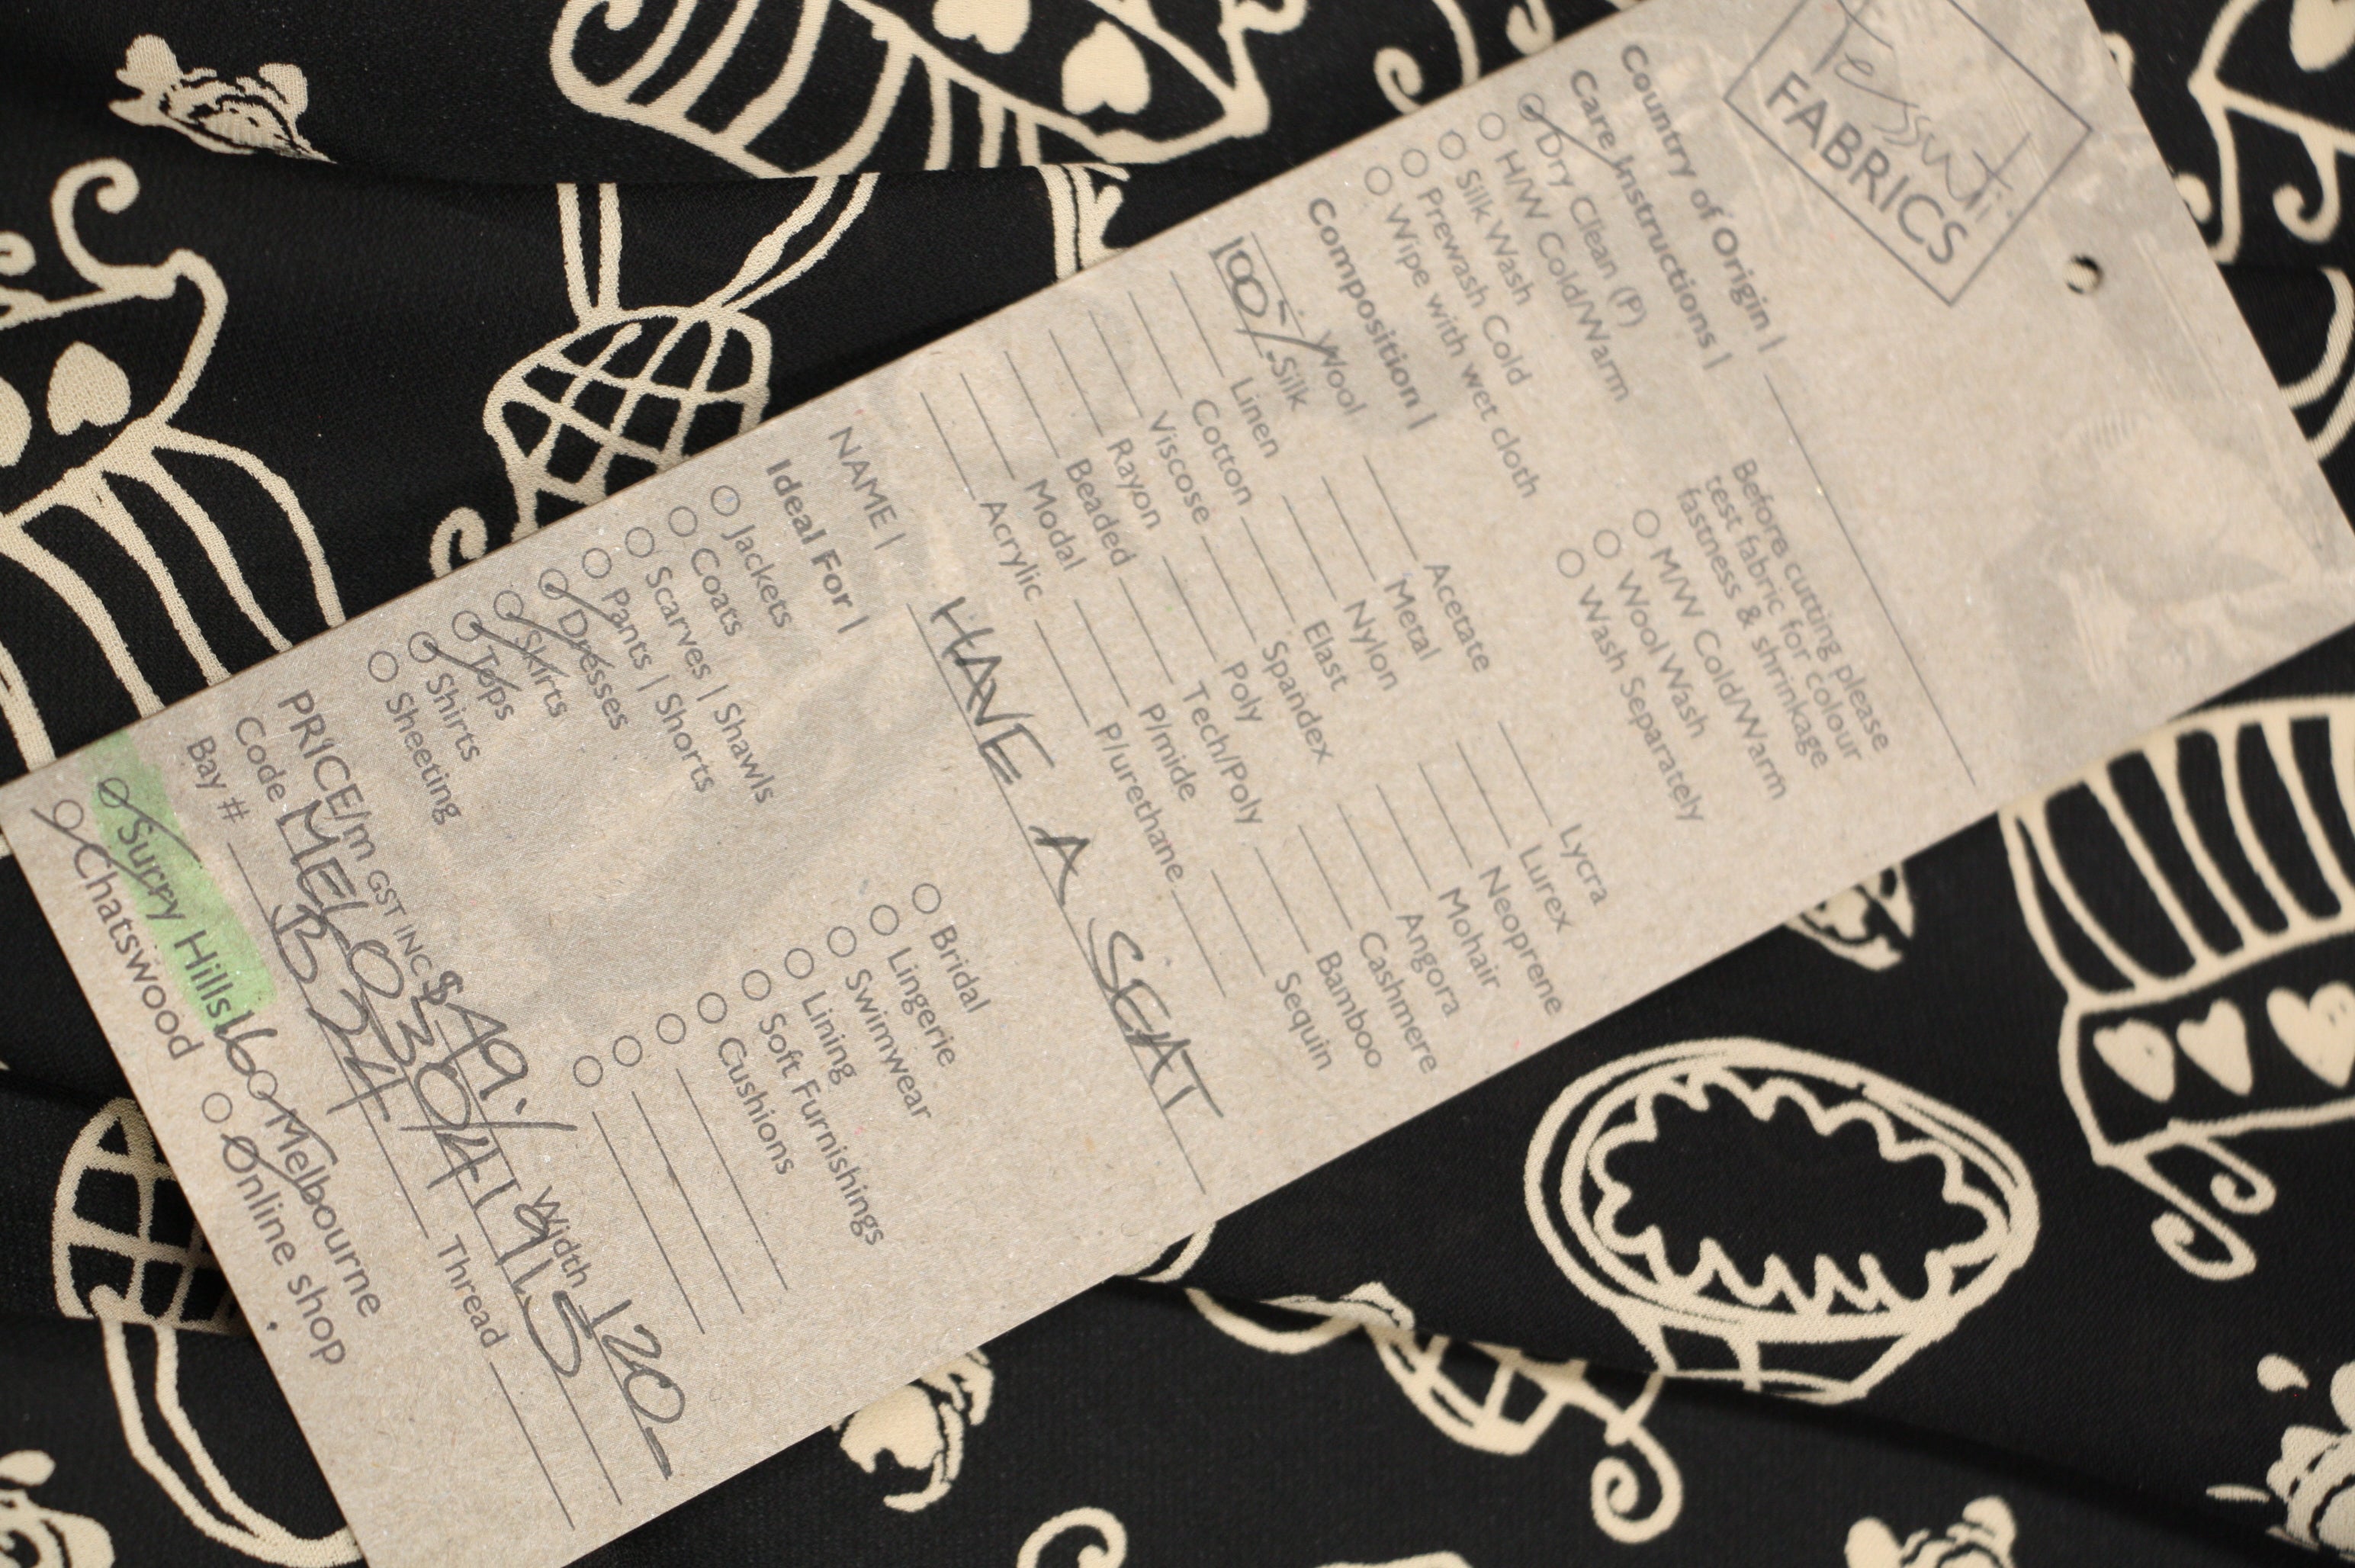 Tessuti
FABRICS
Country of Origin |
Care Instructions |
Dry Clean (P)
H/W Cold/Warm
Silk Wash
Prewash Cold
Wipe with wet cloth
Before cutting please
test fabric for colour
fastness & shrinkage
M/W Cold/Warm
Wool Wash
Wash Separately
Composition |
Wool Acetate Lycra
100% Silk Metal Lurex
Linen Nylon Neoprene
Cotton Elast Mohair
Viscose Spandex Angora
Rayon Poly Cashmere
Beaded Tech/Poly Bamboo
Modal P/mide Sequin
Acrylic P/urethane
NAME | HAVE A SEAT
Ideal For |
Jackets Bridal
Coats Lingerie
Scarves | Shawls Swimwear
Pants | Shorts Lining
Dresses Soft Furnishings
Skirts Cushions
Tops
Shirts
Sheeting
PRICE/m GST INC $ A9./ Width 120-
Code
Bay # B 24 Thread
Surry Hills 16 Melbourne
Chatswood Online shop